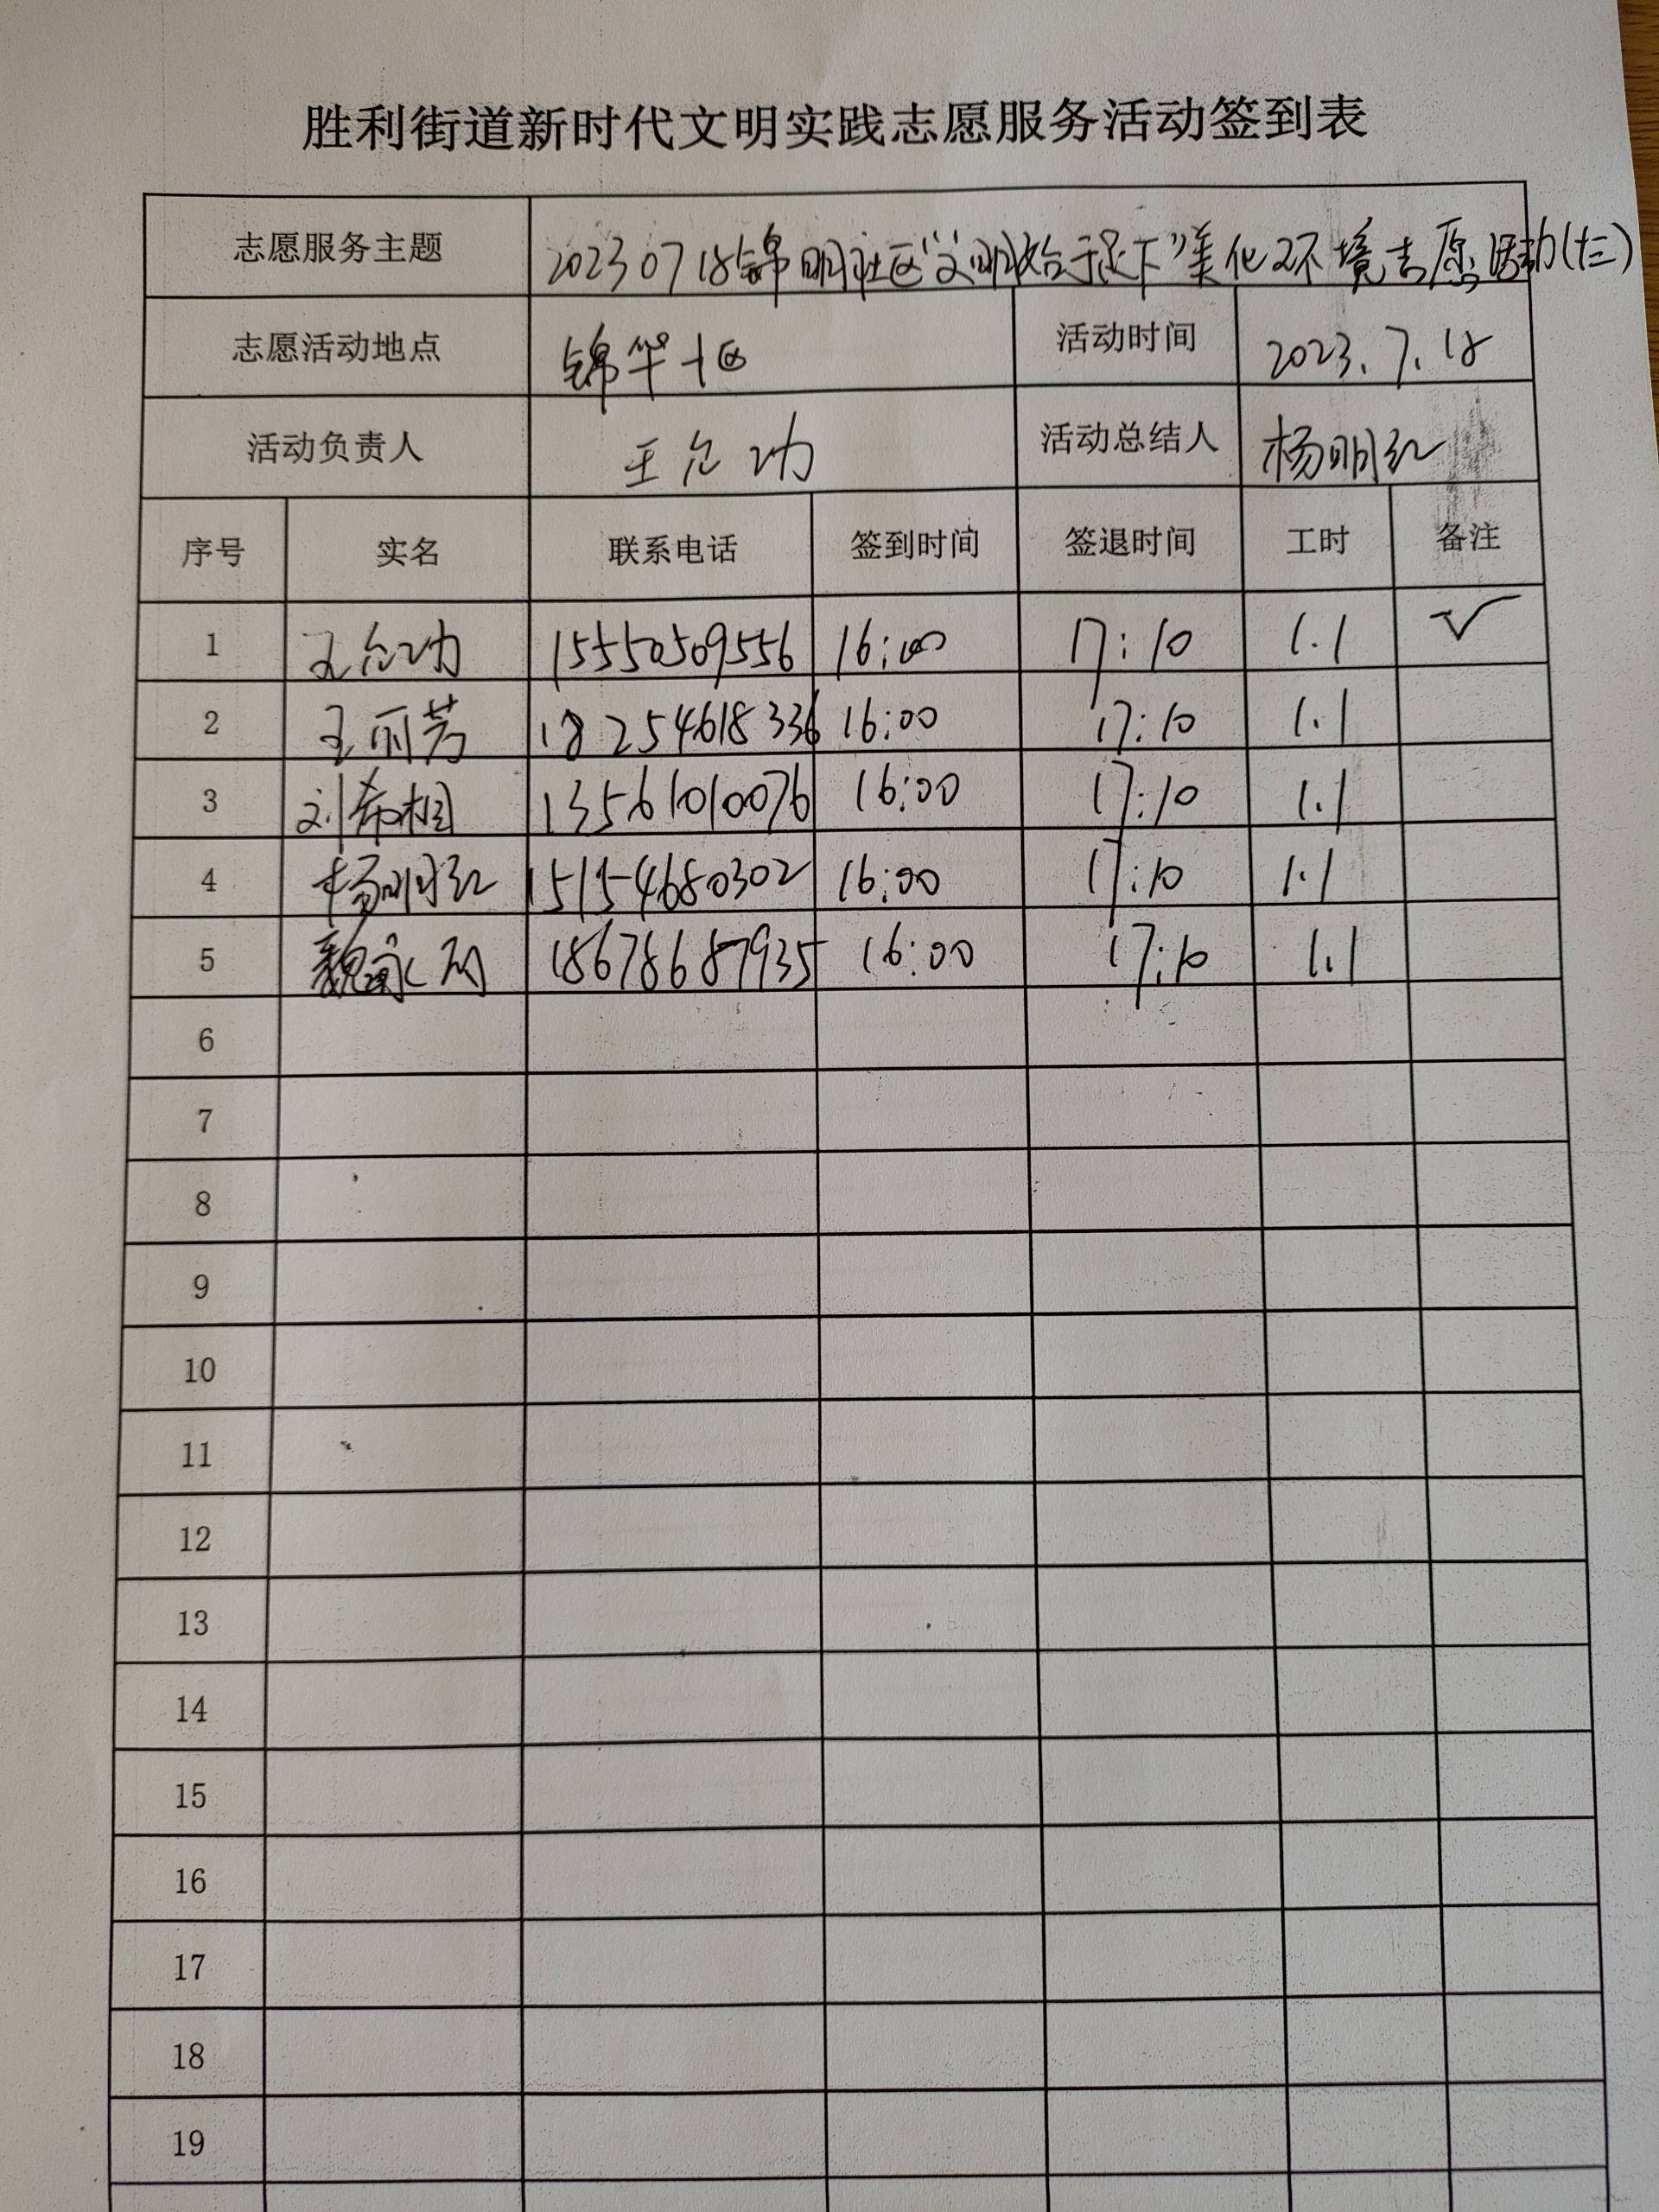 胜利街道新时代文明实践志愿服务活动签到表
志愿服务主题 20230718锦明社区“文明始于足下”美化环境志愿活动(十三)
志愿活动地点 锦华十区 活动时间 2023.7.18
活动负责人 王允功 活动总结人 杨明红
序号 实名 联系电话 签到时间 签退时间 工时 备注
1 王允功 15550509556 16:00 17:10 1.1 √
2 王丽芳 18254618336 16:00 17:10 1.1
3 刘希相 13561010076 16:00 17:10 1.1
4 杨明红 15154680302 16:00 17:10 1.1
5 魏永 18678687935 16:00 17:10 1.1
6
7
8
9
10
11
12
13
14
15
16
17
18
19